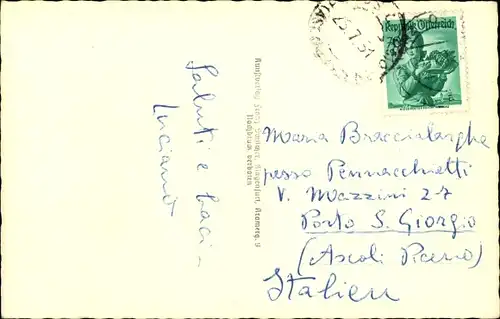 Saluti e baci
Luciano
Kunstverlag Franz Schilcher, Klagenfurt, Kramerg. 9
Nachdruck verboten
25.7.51
Republik Österreich
Maria Braccialarghe
presso Pennacchietti
V. Mazzini 27
Porto S. Giorgio
(Ascoli Piceno)
Italien